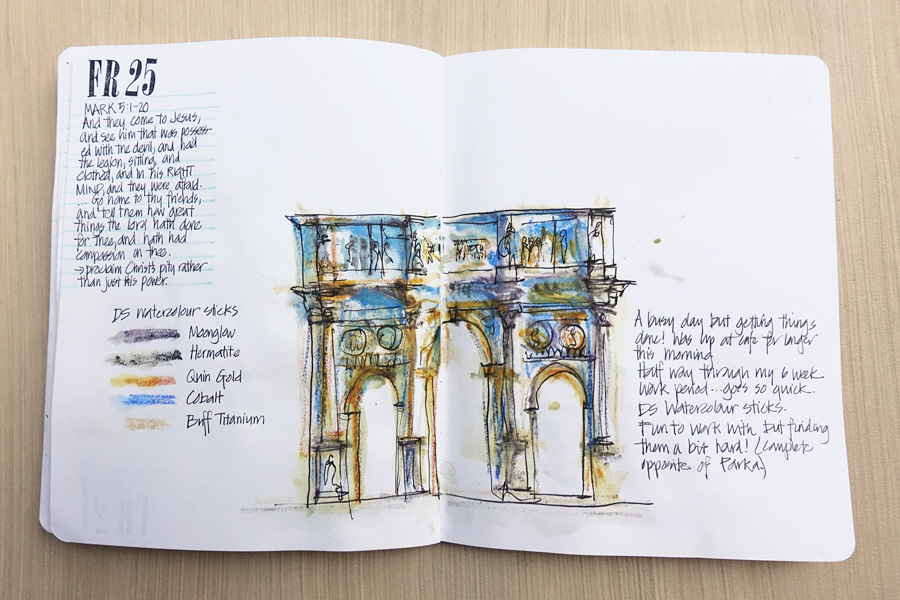 FR 25
MARK 5:1-20
And they come to Jesus,
and see him that was possess-
ed with the devil, and had
the legion, sitting, and
clothed, and in his RIGHT
MIND, and they were afraid.
... Go home to thy friends,
and tell them how great
things the Lord hath done
for thee, and hath had
compassion on thee.
→ proclaim Christ's pity rather
than just his power.
DS Watercolour sticks
Moonglow
Hermatite
Quin Gold
Cobalt
Buff Titanium
A busy day but getting things
done! Was up at cafe for longer
this morning
Half way through my 6 week
work period... goes so quick.
DS Watercolour sticks.
Fun to work with but finding
them a bit hard! (complete
opposite of Parka)